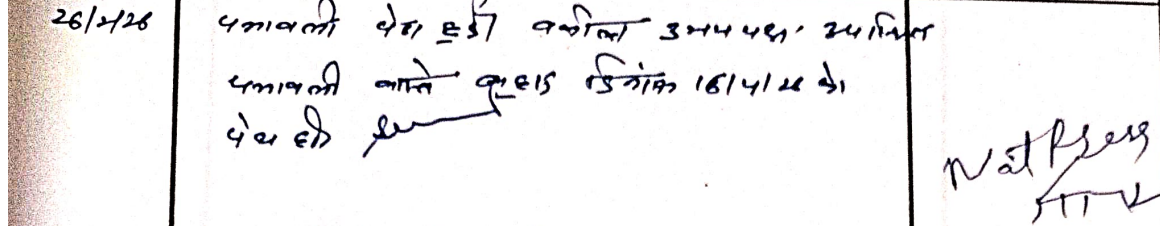 26/2/26 पत्रावली पेश हुई वकील उभयपक्ष उपस्थित
पत्रावली वास्ते बहस दिनांक 16/4/26 को
पेश हो
Not Press